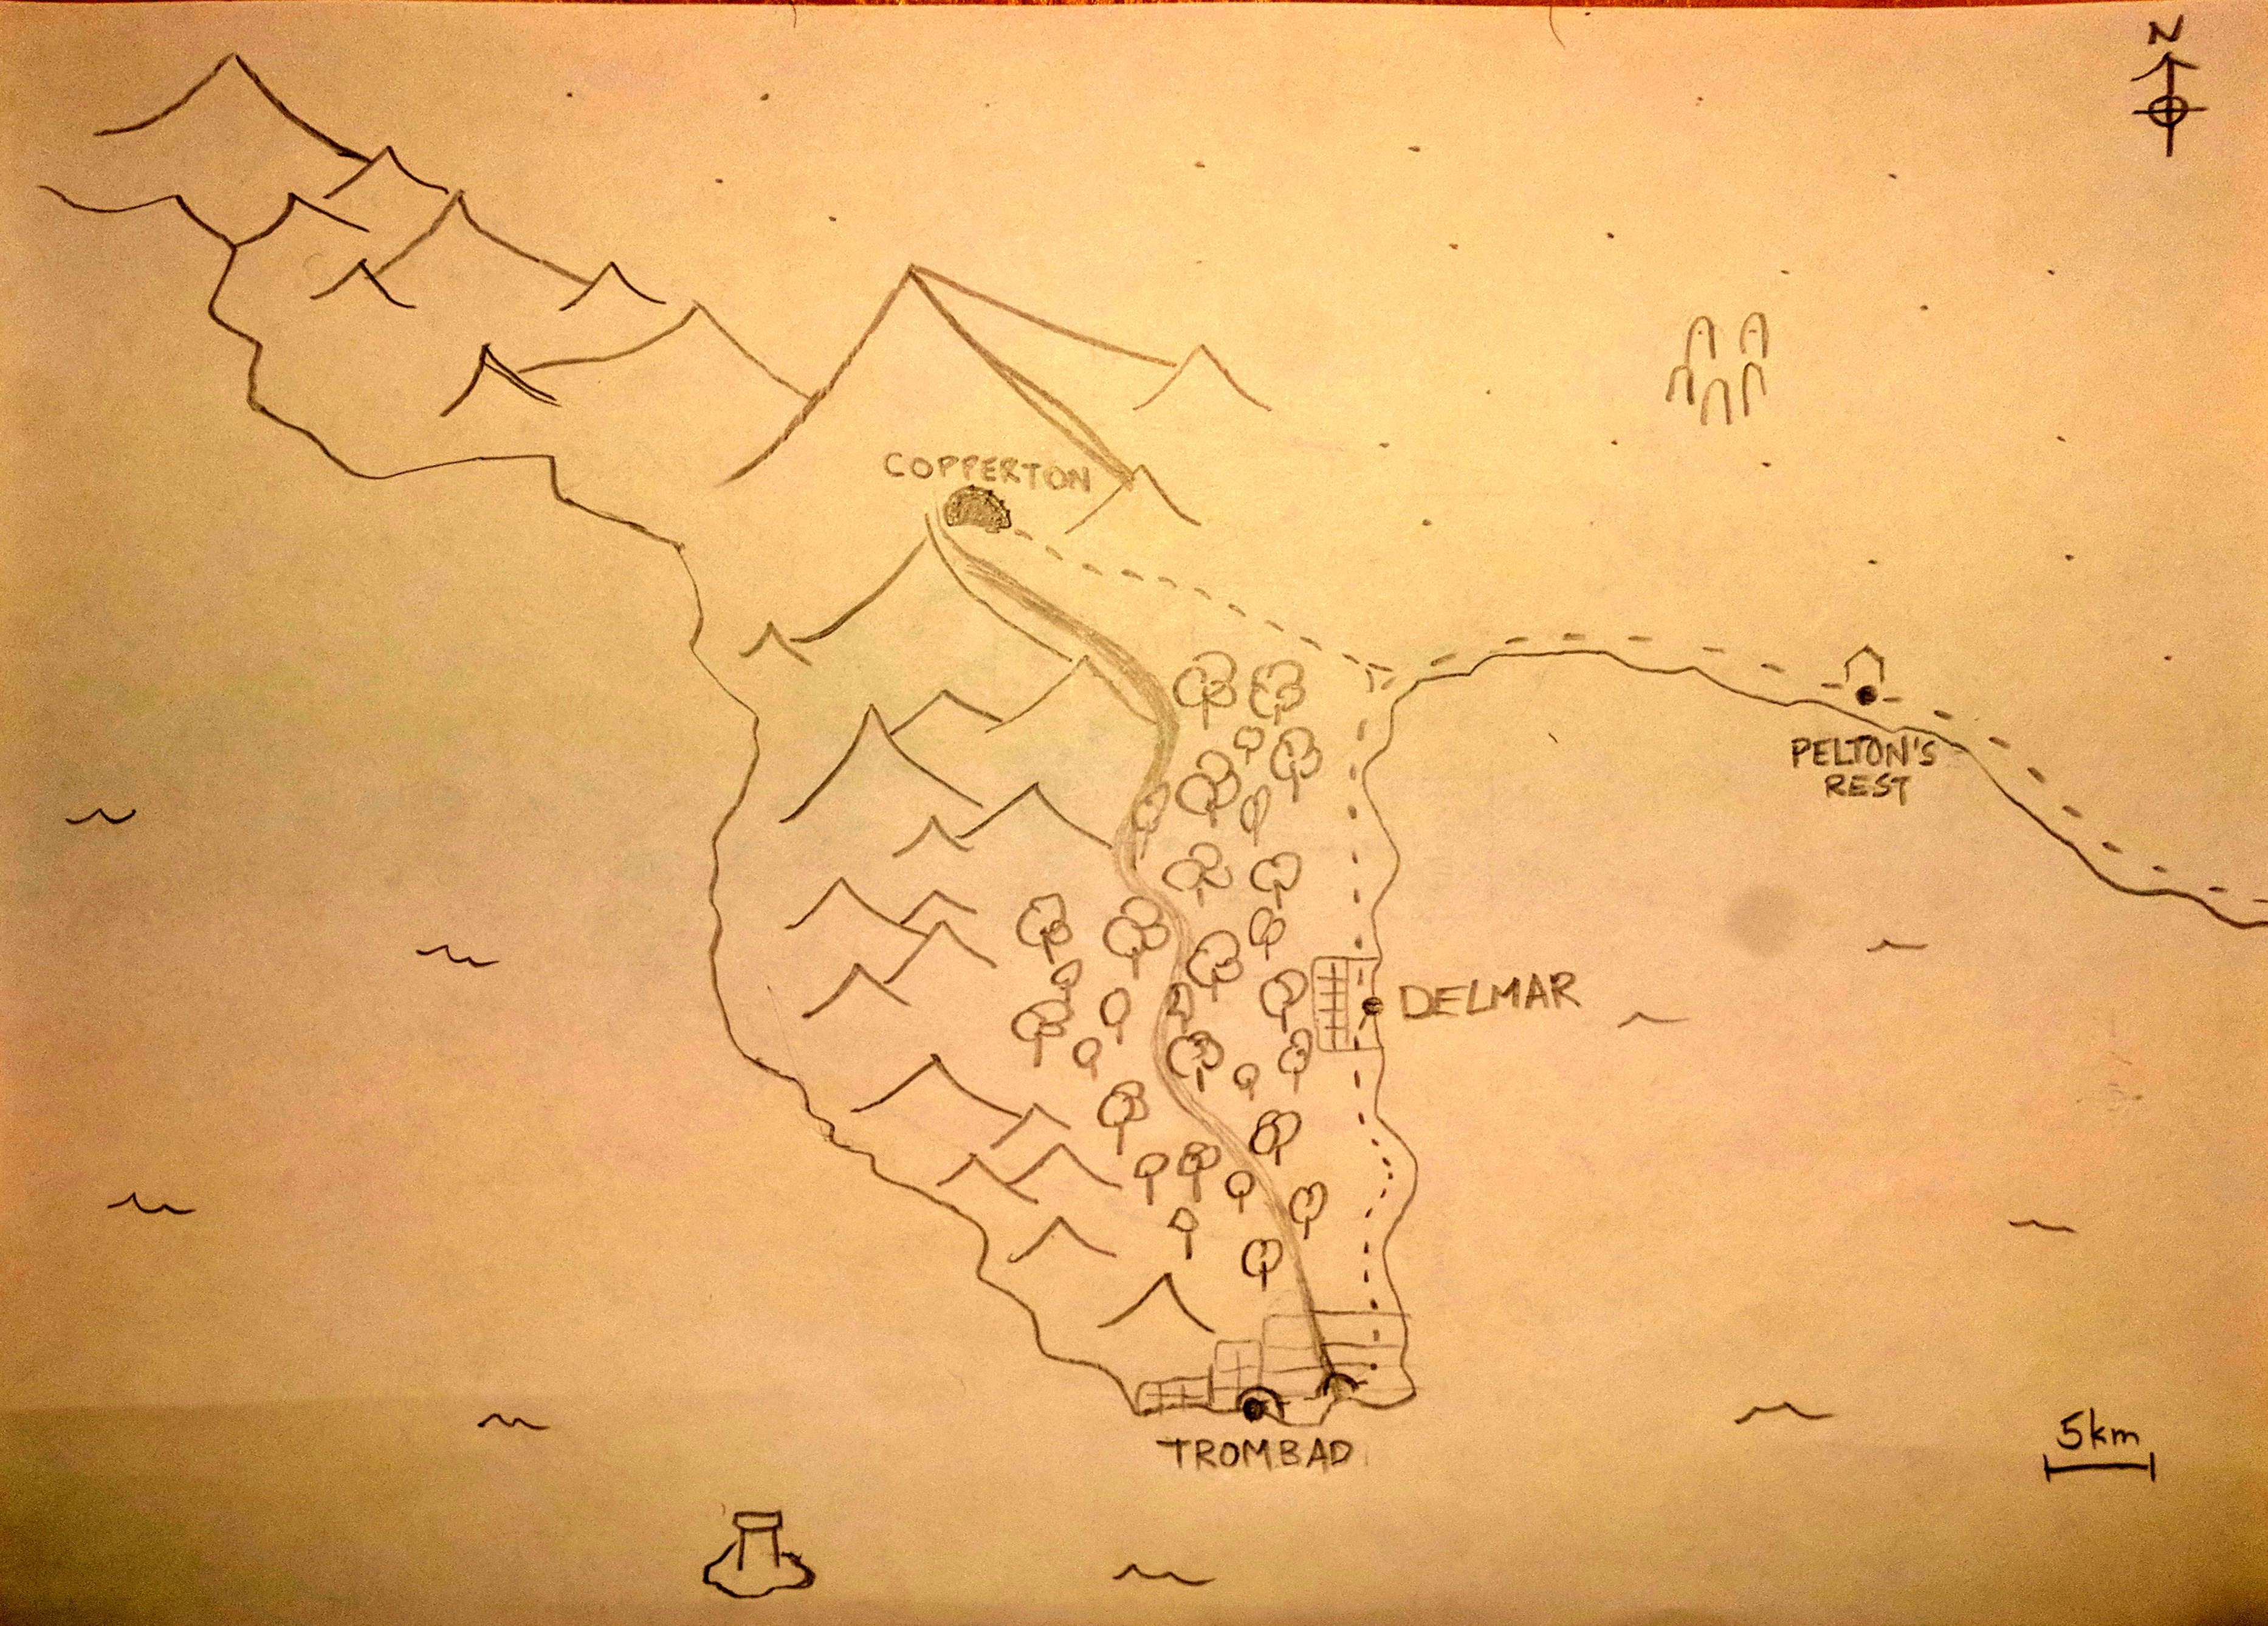 N
COPPERTON
PELTON'S
REST
DELMAR
5km
TROMBAD